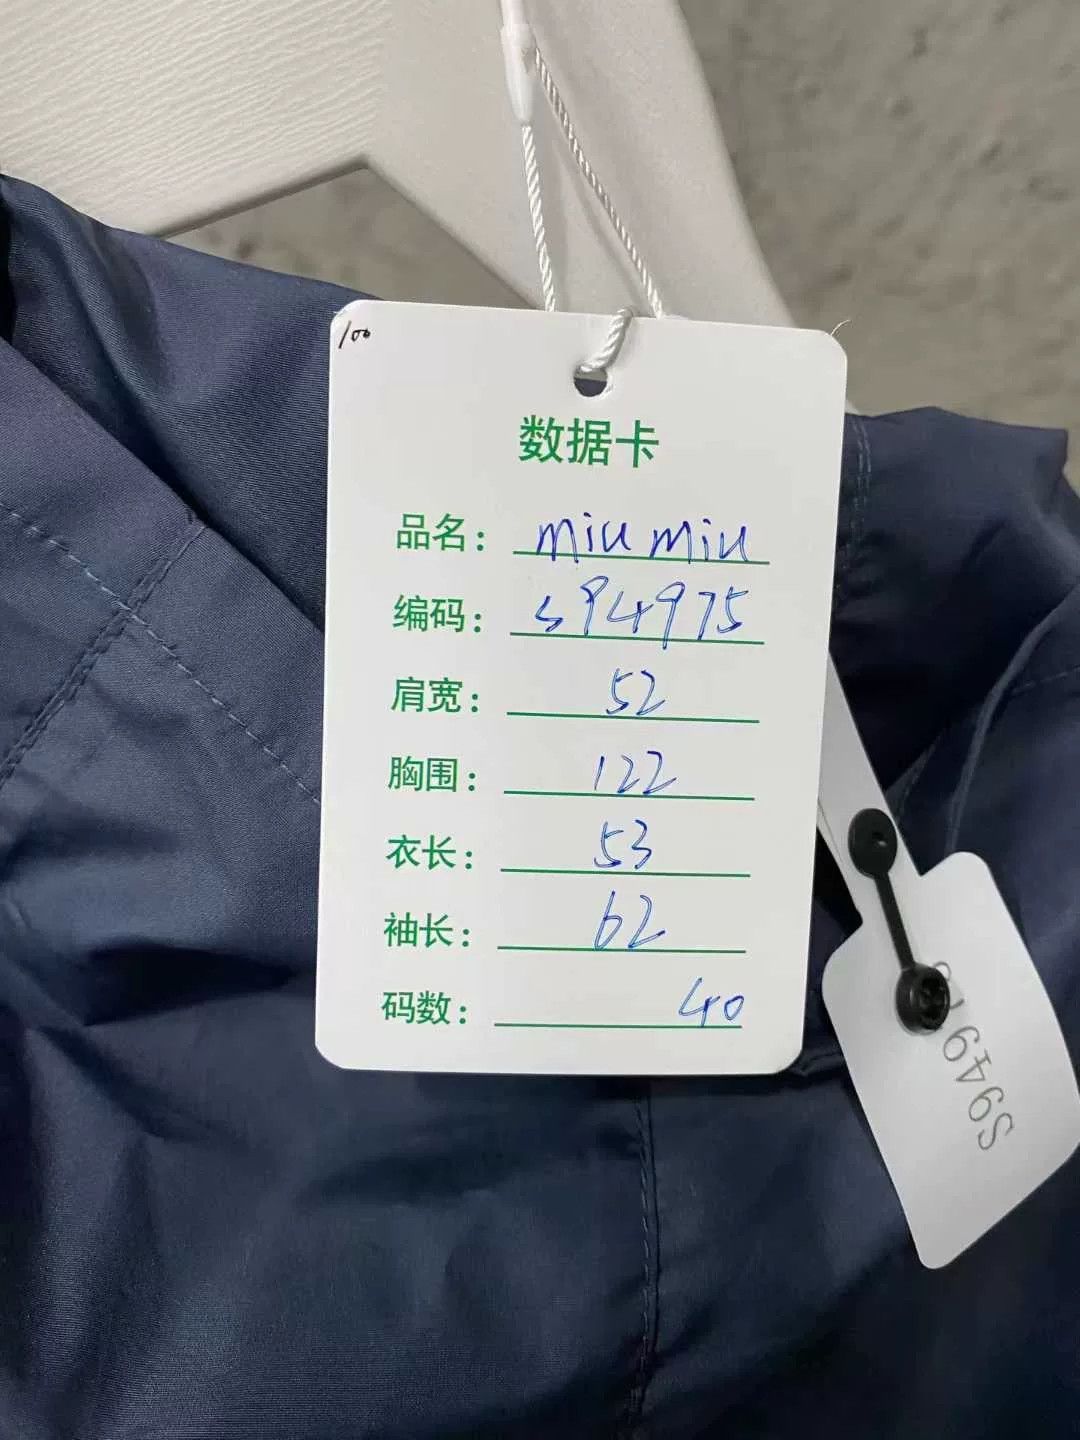 100
数据卡
品名: miu miu
编码: s94975
肩宽: 52
胸围: 122
衣长: 53
袖长: 62
码数: 40